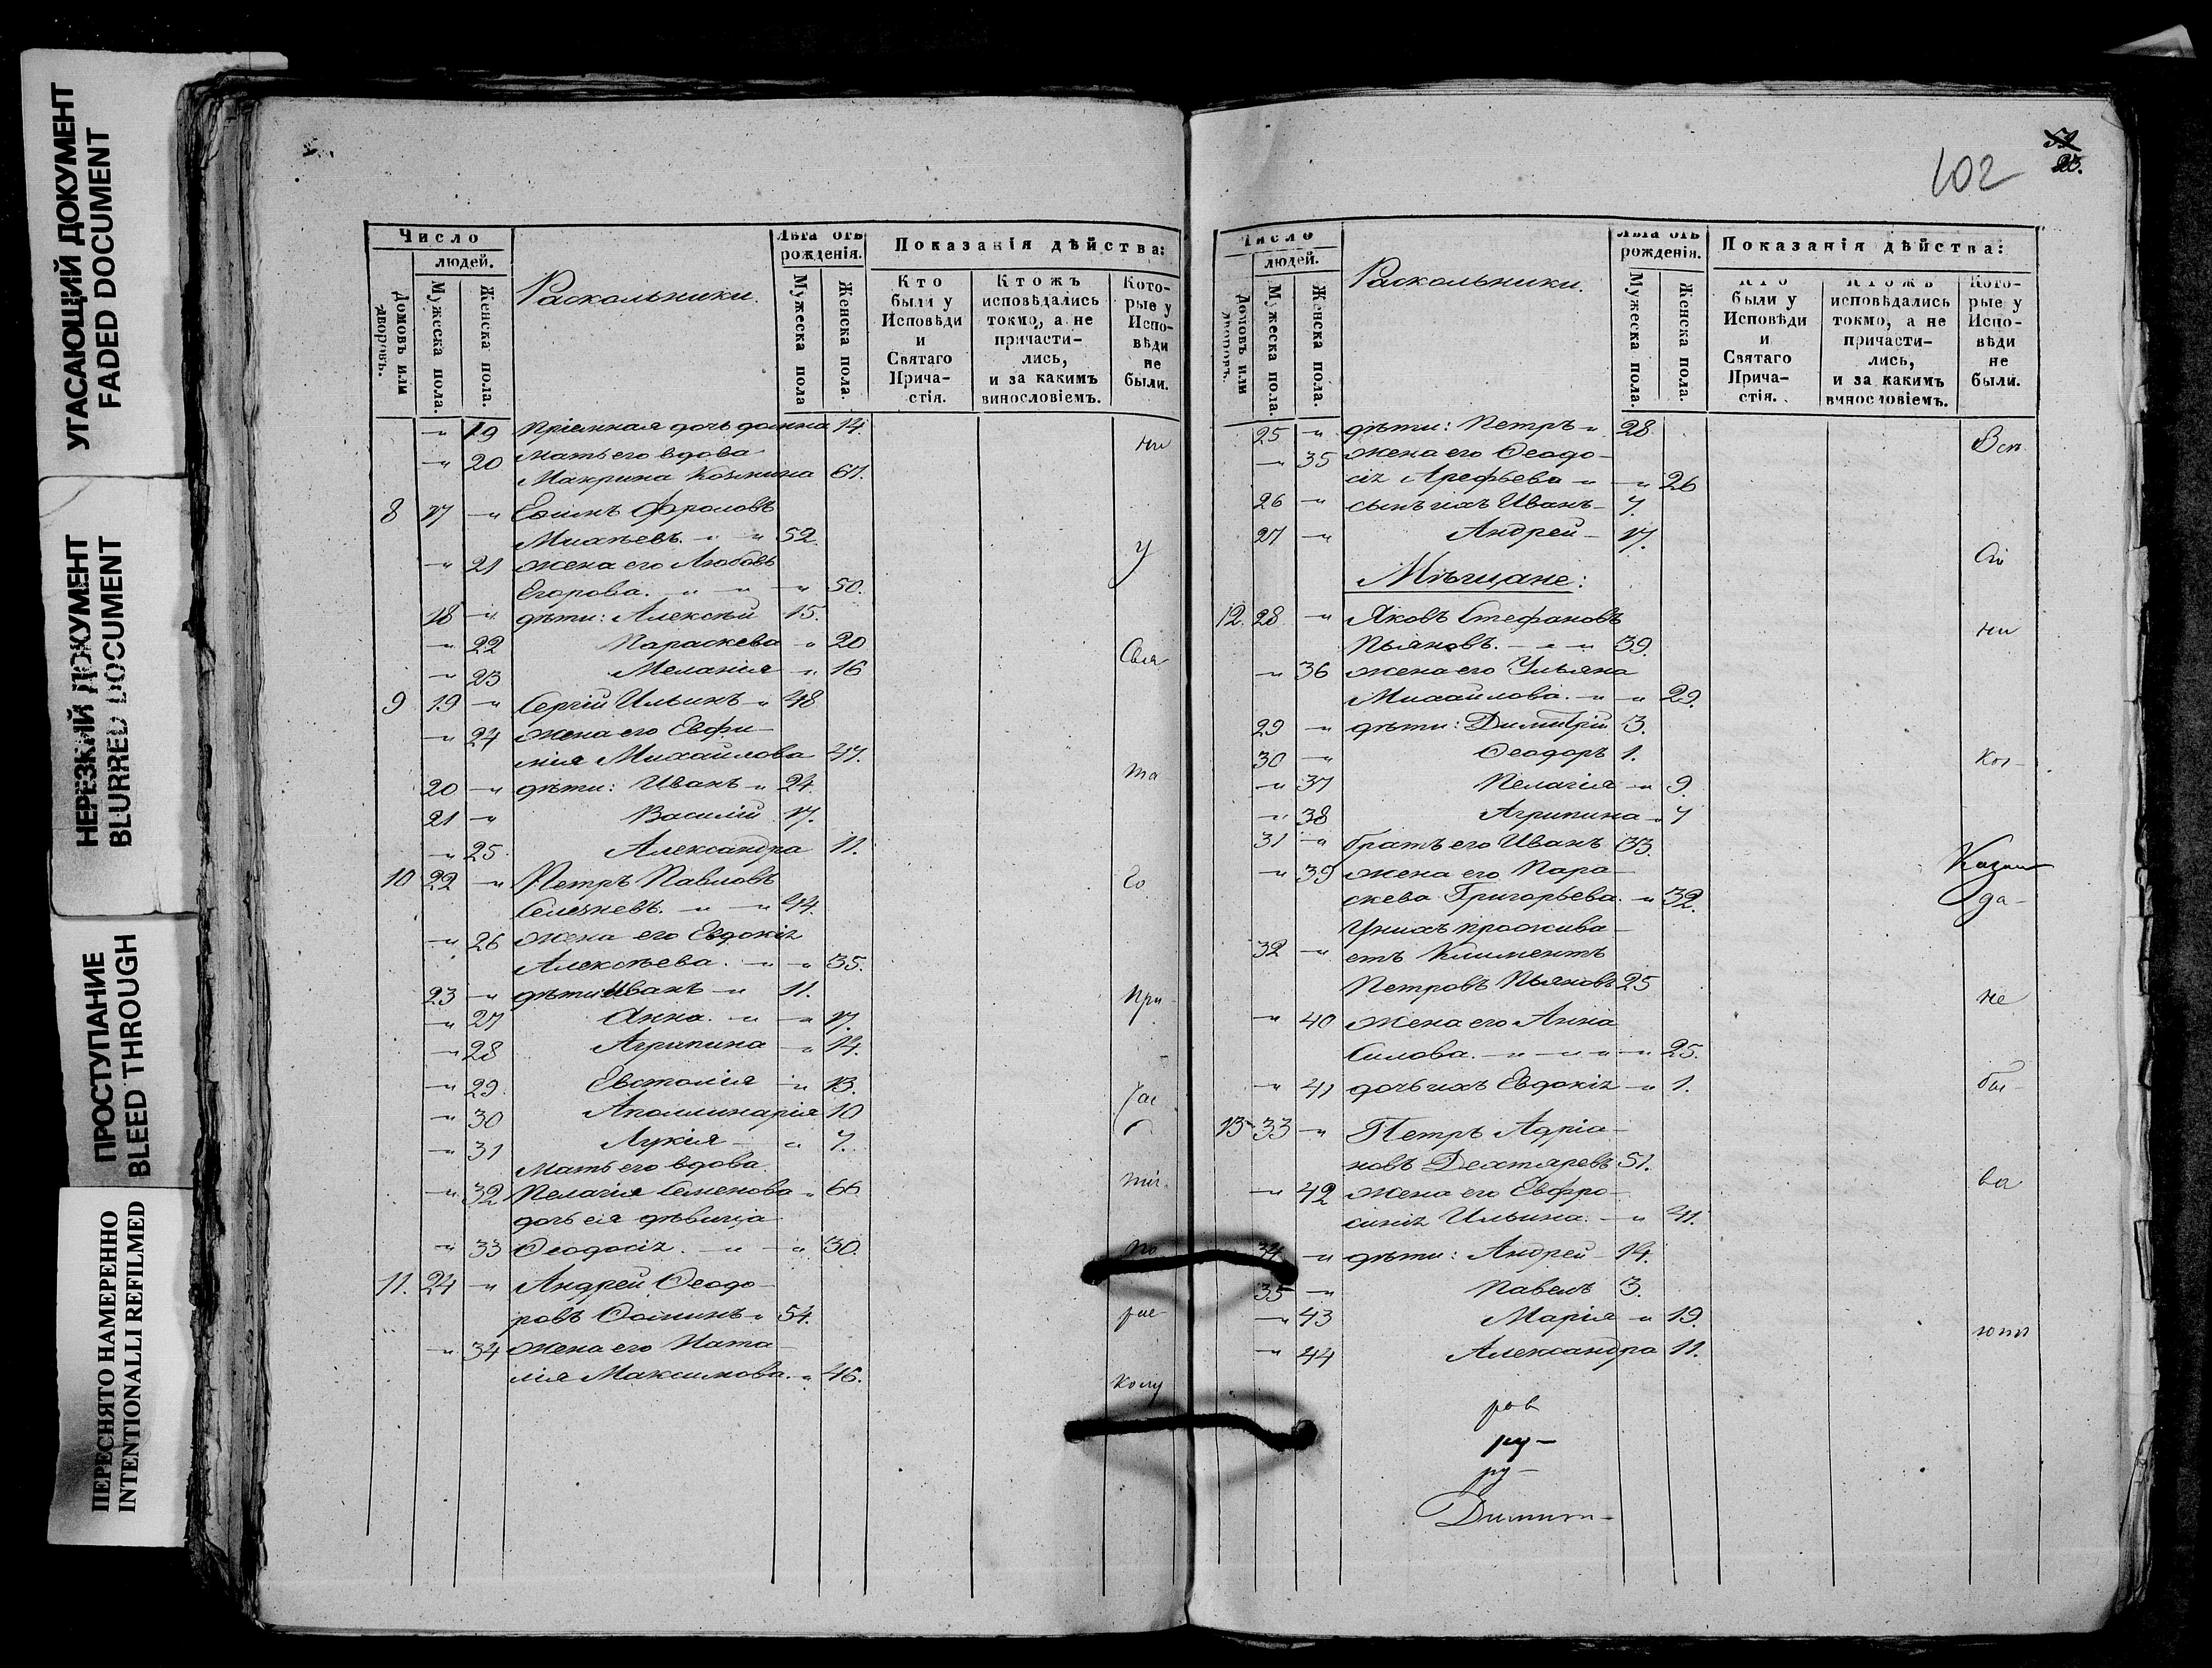 УГАСАЮЩИЙ ДОКУМЕНТ
FADED DOCUMENT
НЕРЕЗКИЙ ДОКУМЕНТ
BLURRED DOCUMENT
ПРОСТУПАНИЕ
BLEED THROUGH
ПЕРЕСНЯТО НАМЕРЕННО
INTENTIONALLI REFILMED
Число
людей.
Домовъ или дворовъ.
Мужеска пола.
Женска пола.
Раскольники.
Лѣта отъ
рожденія.
Мужеска пола
Женска пола.
Показанія дѣйства:
Кто
были у
Исповѣди
и
Святаго
Прича-
стія.
Ктожъ
исповѣдались
токмо, а не
причасти-
лись,
и за какимъ
винословіемъ.
Кото-
рые у
Испо-
вѣди
не
были.
-"- 19 Пріемная дочь 14. ни
-"- 20 мать его вдова
Макрина Козмина 61.
8 17 -"- Фроловъ
Михѣевъ. -"- 52.
-"- 21 жена его Любовь у
Егорова. -"- 50.
18 -"- дѣти: Алексѣй 15.
-"- 22 Параскева -"- 20
-"- 23 Меланія -"- 16 Свя
9 19 -"- Сергій Ильинъ -"- 48
-"- 24 жена его Евфи-
мія Михаилова 47.
20 -"- дѣти: Иванъ -"- 24 та
21 -"- Василій 17.
-"- 25 Александра 11.
10 22 -"- Петръ Павловъ го
Селезневъ. -"- 44.
-"- 26 жена его Евдокія
Алексѣева. -"- 35.
23 -"- дѣти: Иванъ -"- 11. При
-"- 27 Анна. -"- 17.
-"- 28 Агрипина -"- 14.
-"- 29 Евстолія -"- 13.
-"- 30 Аполлинарія 10 час
-"- 31 Лукія -"- 7.
мать его вдова
-"- 32 Пелагія Семенова -"- 66 тія
дочь ея дѣвица
-"- 33 Ѳеодосія. -"- 30. по
11. 24 -"- Андрей Ѳеодо-
ровъ Ѳоминъ -"- 54. рас
-"- 34 жена его Ната-
лія Максимова. -"- 46. колу
102
23.
Число
людей.
Домовъ или дворовъ.
Мужеска пола.
Женска пола.
Раскольники.
Лѣта отъ
рожденія.
Мужеска пола.
Женска пола.
Показанія дѣйства:
Кто
были у
Исповѣди
и
Святаго
Прича-
стія.
Ктожъ
исповѣдались
токмо, а не
причасти-
лись,
и за какимъ
винословіемъ.
Кото-
рые у
Испо-
вѣди
не
были.
25 -"- дѣти: Петръ -"- 28
-"- 35 жена его Ѳеодо-
сія Арефьева -"- 26
26 -"- сынъ ихъ Иванъ - 7.
27 -"- Андрей - 17.
Мѣщане:
12. 28 -"- Яковъ Стефановъ ни
Пьяновъ. -"- 39.
-"- 36 жена его Ульяна
Михаилова. -"- 29.
29 -"- дѣти: Димитрій 3.
30 -"- Ѳеодоръ 1. ког-
-"- 37 Пелагія -"- 9.
-"- 38 Агрипина -"- 7
31 -"- братъ его Иванъ 33.
-"- 39 жена его Пара-
скева Григорьева. -"- 32. да-
У нихъ прожива-
32 -"- етъ Климентъ
Петровъ Пьяновъ 25 не
-"- 40 жена его Анна
Силова. -"- 25.
-"- 41 дочь ихъ Евдокія -"- 1. бы-
13 33 -"- Петръ Адріа-
новъ Дехтяревъ 51.
-"- 42 жена его Евфро- ва
синія Ильина. -"- 41.
34 -"- дѣти: Андрей - 14.
35 -"- Павелъ 3.
-"- 43 Марія -"- 19. ютъ
-"- 44 Александра 11.
ров
ру-
ру-
Димит-